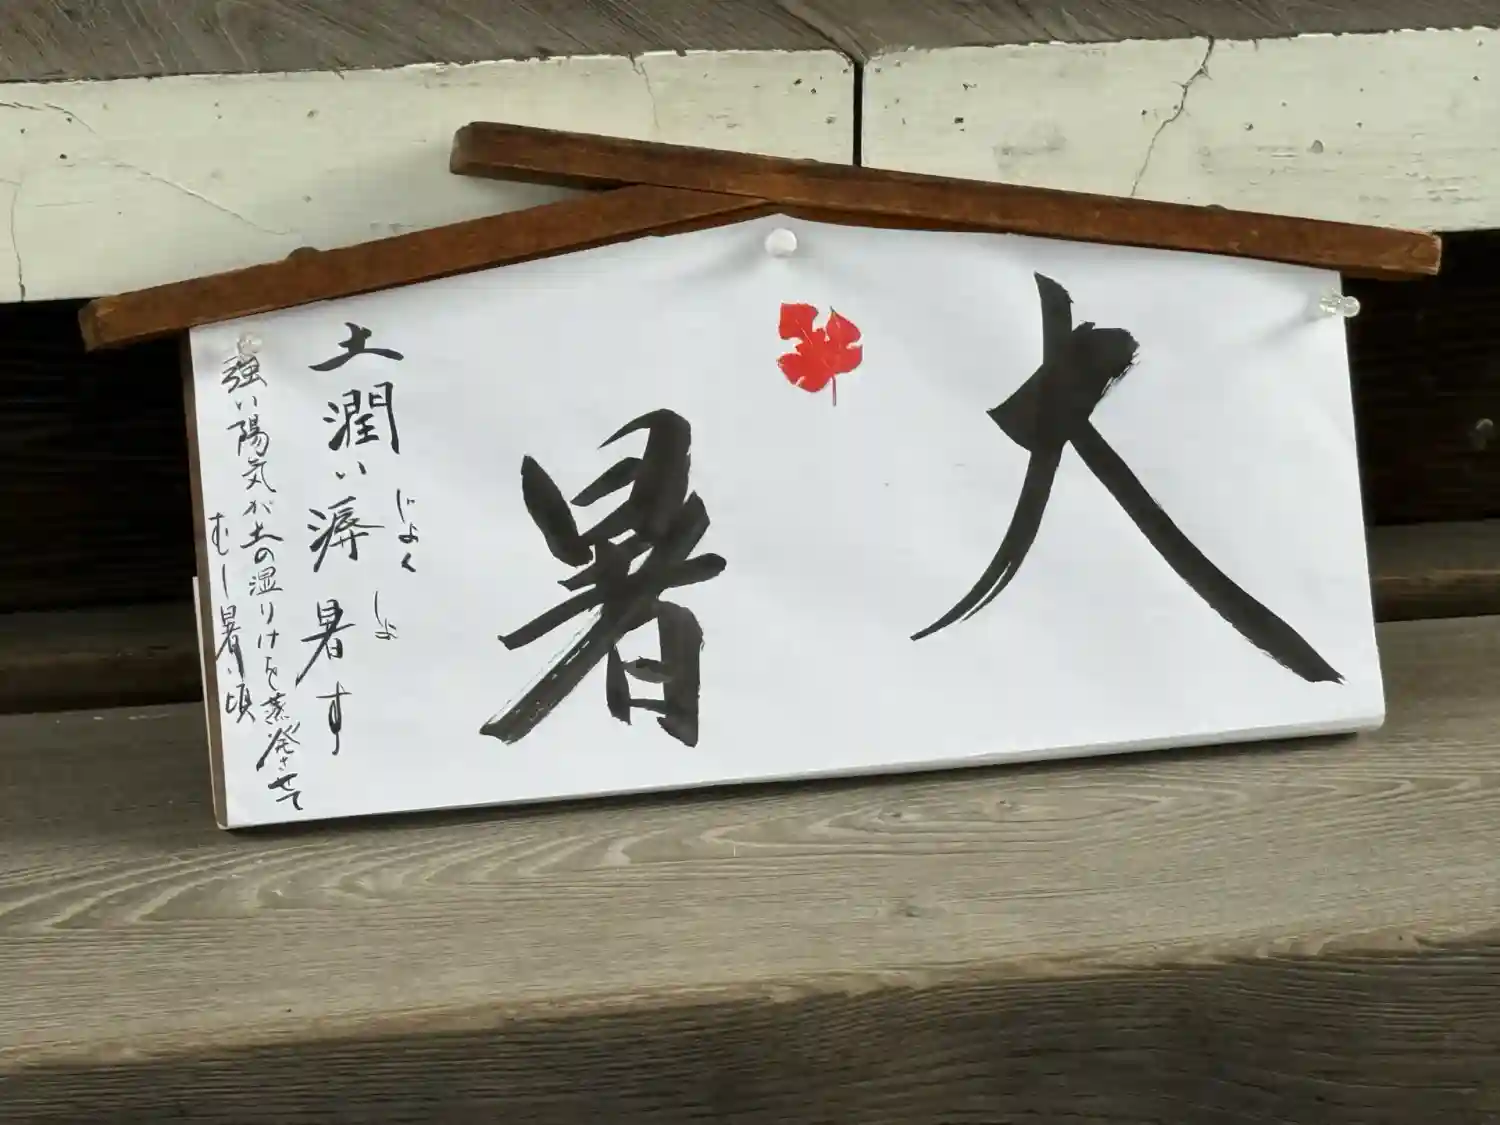 大暑
土潤い溽暑す
じょく
しょ
強い陽気が土の湿りけを蒸発させて
むし暑い頃